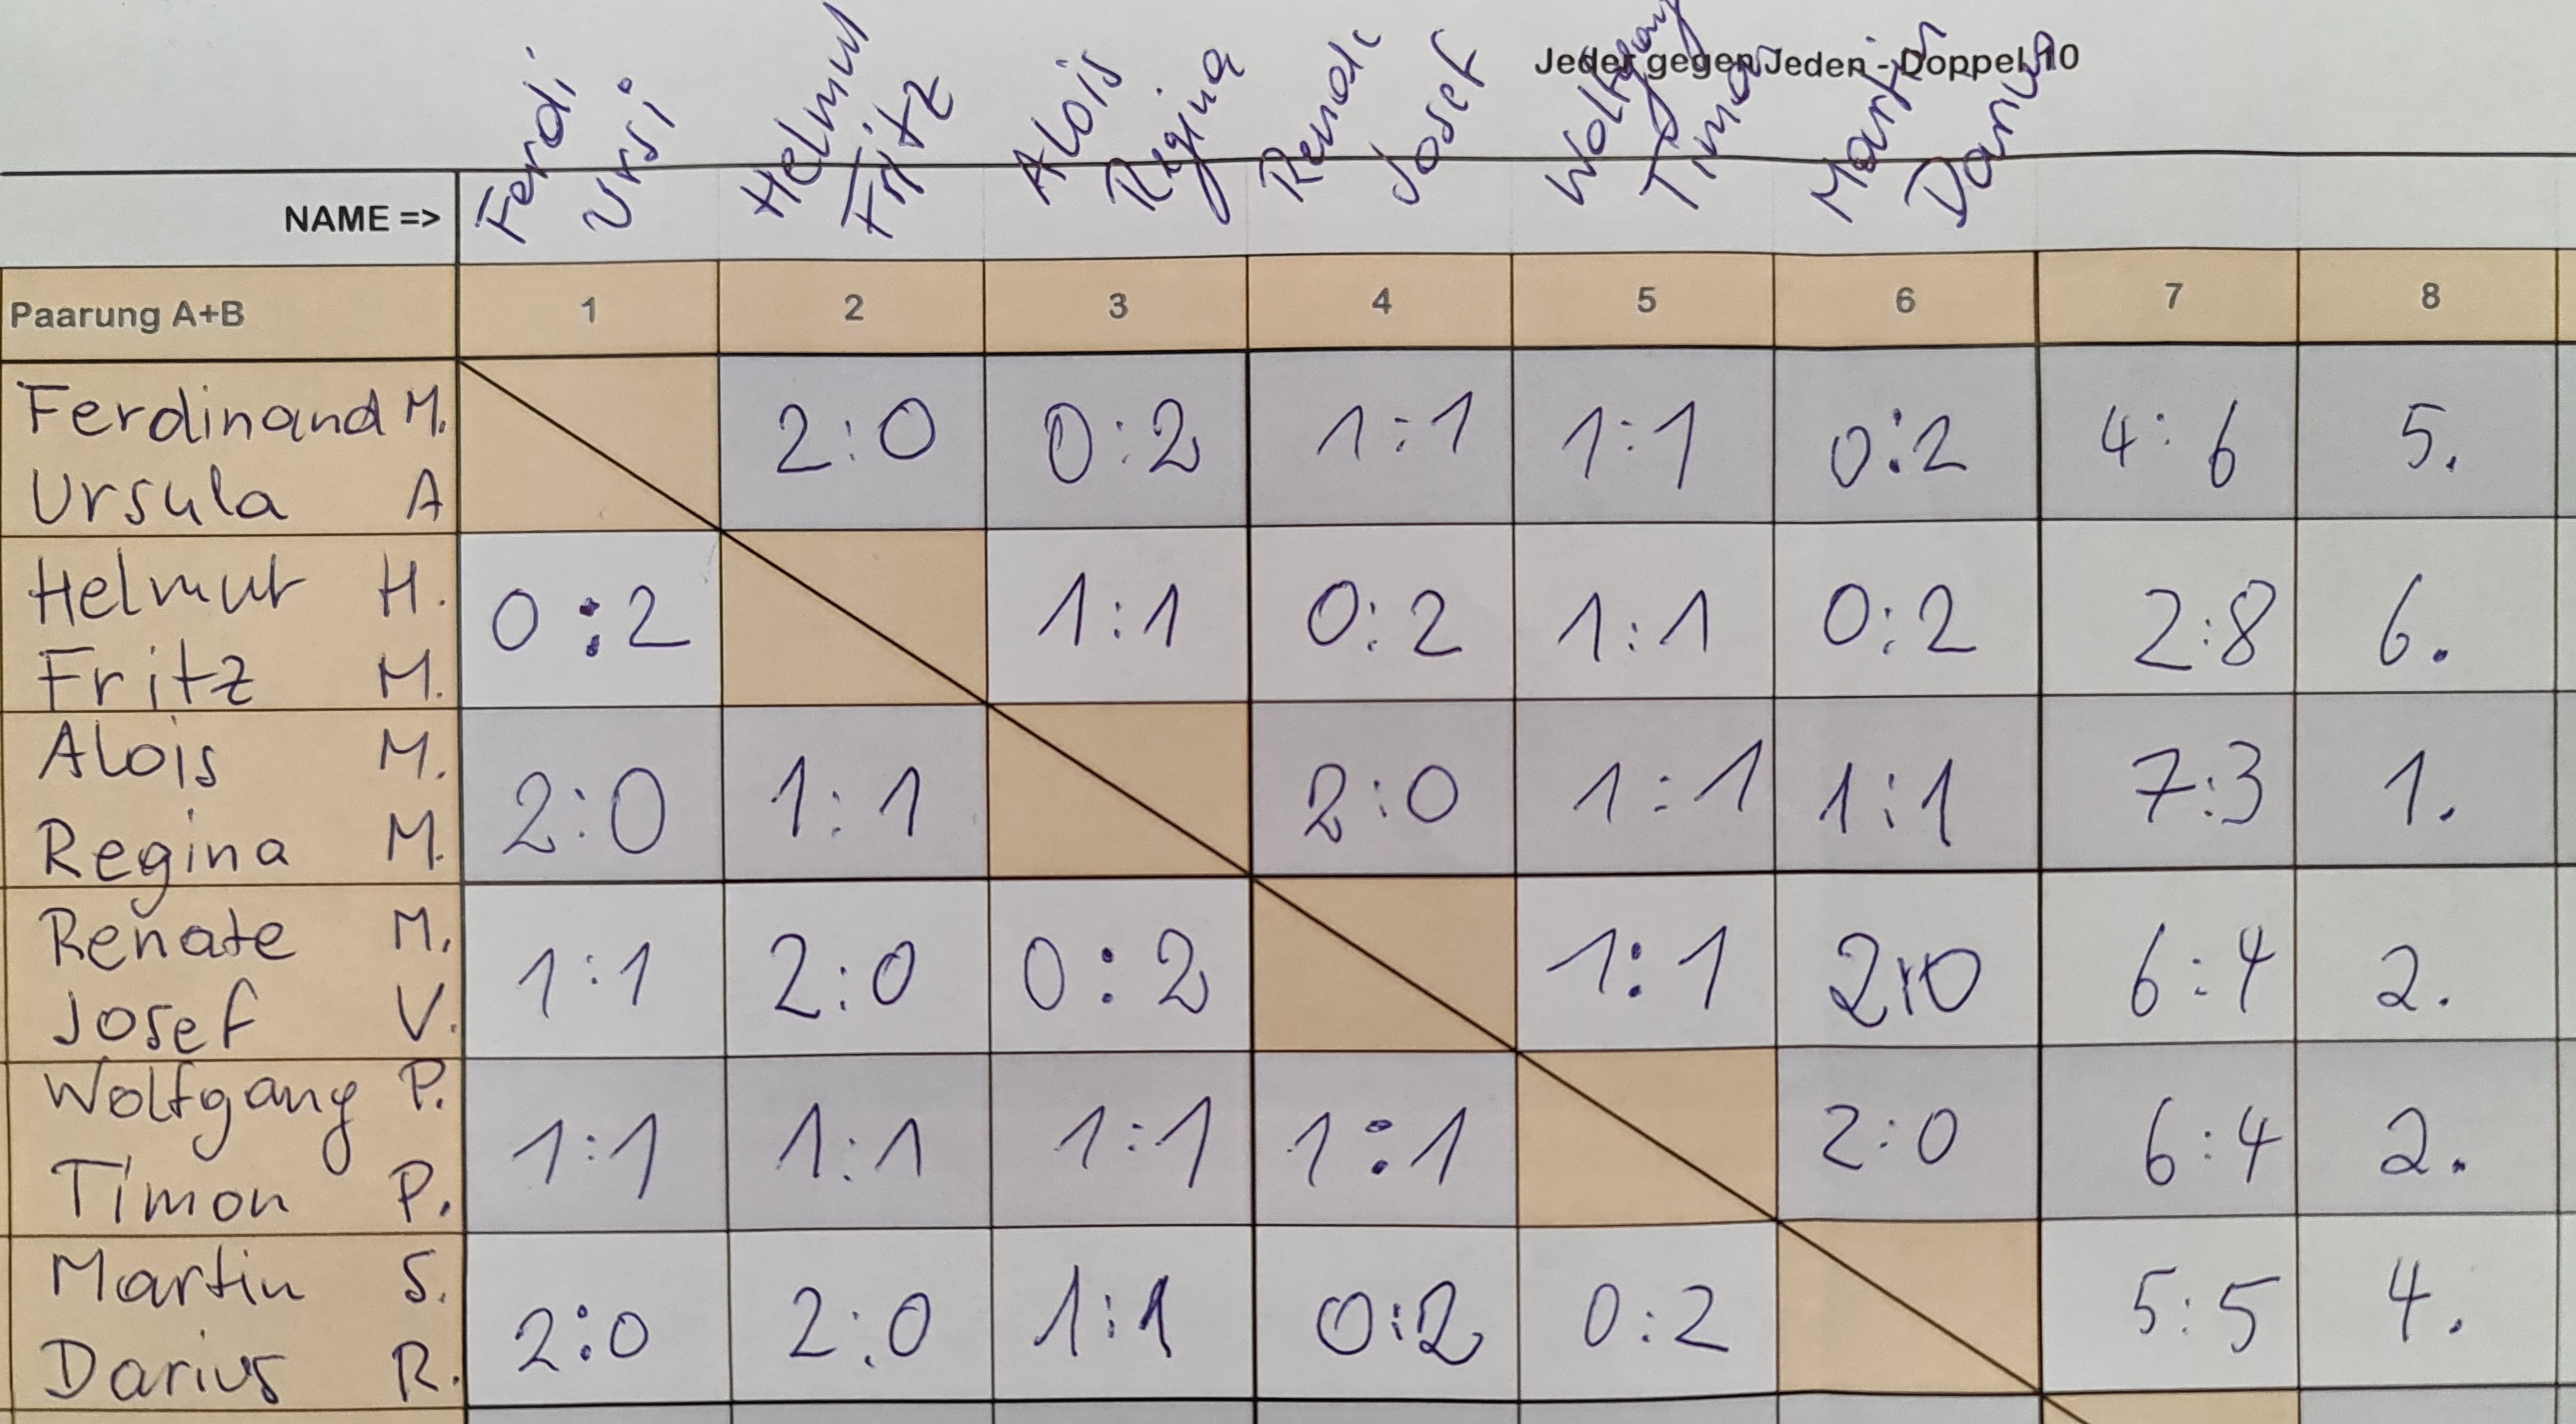 Jeder gegen Jeden - Doppel 10
Ferdi Ursi Helmut Fritz Alois Regina Josef Wolfgang Timon Martin Darius
NAME =>
Paarung A+B 1 2 3 4 5 6 7 8
Ferdinand M.
Ursula A
2:0 0:2 1:1 1:1 0:2 4:6 5.
Helmut H.
Fritz M.
0:2 1:1 0:2 1:1 0:2 2:8 6.
Alois M.
Regina M.
2:0 1:1 2:0 1:1 1:1 7:3 1.
Renate M.
Josef V.
1:1 2:0 0:2 1:1 2:0 6:4 2.
Wolfgang P.
Timon P.
1:1 1:1 1:1 1:1 2:0 6:4 2.
Martin S.
Darius R.
2:0 2:0 1:1 0:2 0:2 5:5 4.